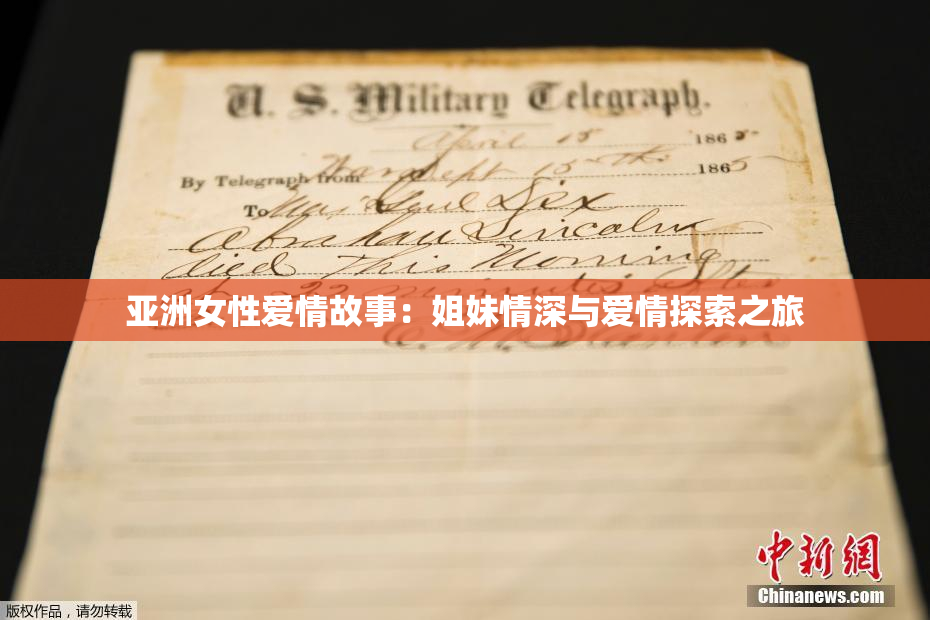 U. S. Military Telegraph.
April 15 1865
By Telegraph from War Dept 15th 1865
To Maj Genl Dix
Abraham Lincoln
died This Morning
at 22 minutes after
亚洲女性爱情故事：姐妹情深与爱情探索之旅
中新網
Chinanews.com
版权作品，请勿转载